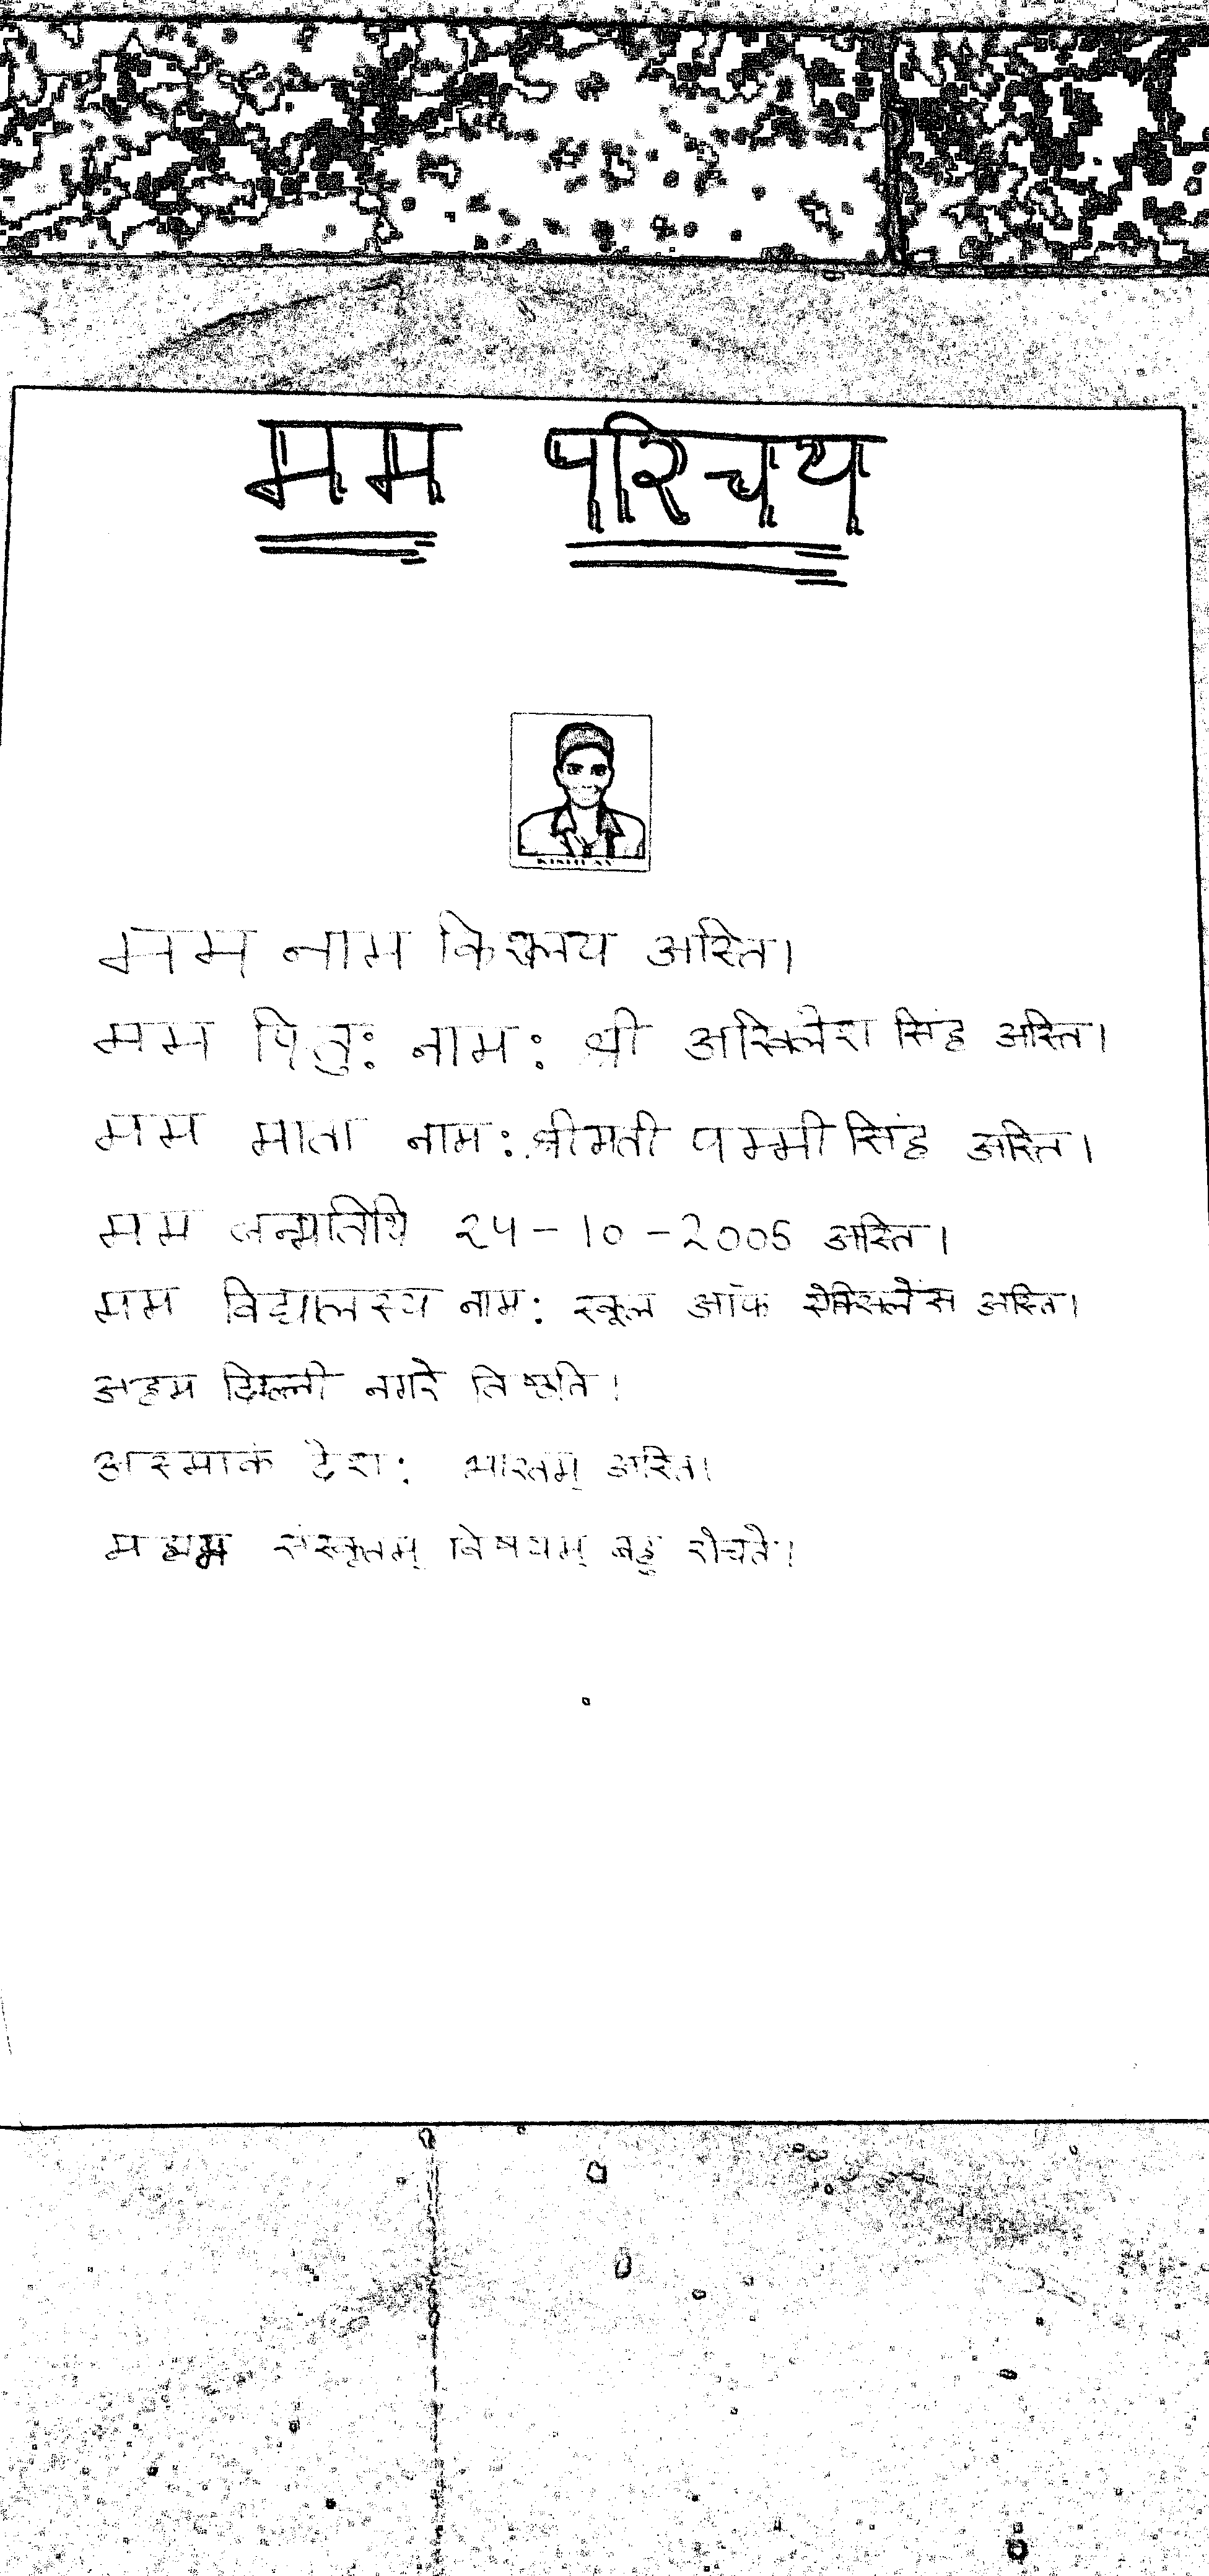 मम परिचय
मम नाम किसलय अस्ति।
मम पितुः नामः श्री अखिलेश सिंह अस्ति।
मम माता नामः श्रीमती पम्मी सिंह अस्ति।
मम जन्मतिथि 24-10-2005 अस्ति।
मम विद्यालस्य नामः स्कूल ऑफ ऐक्सिलेंस अस्ति।
अहम दिल्ली नगरे तिष्ठति।
अस्माकं देशः भारतम् अस्ति।
संस्कृतम् विषयम् बहु रोचते।